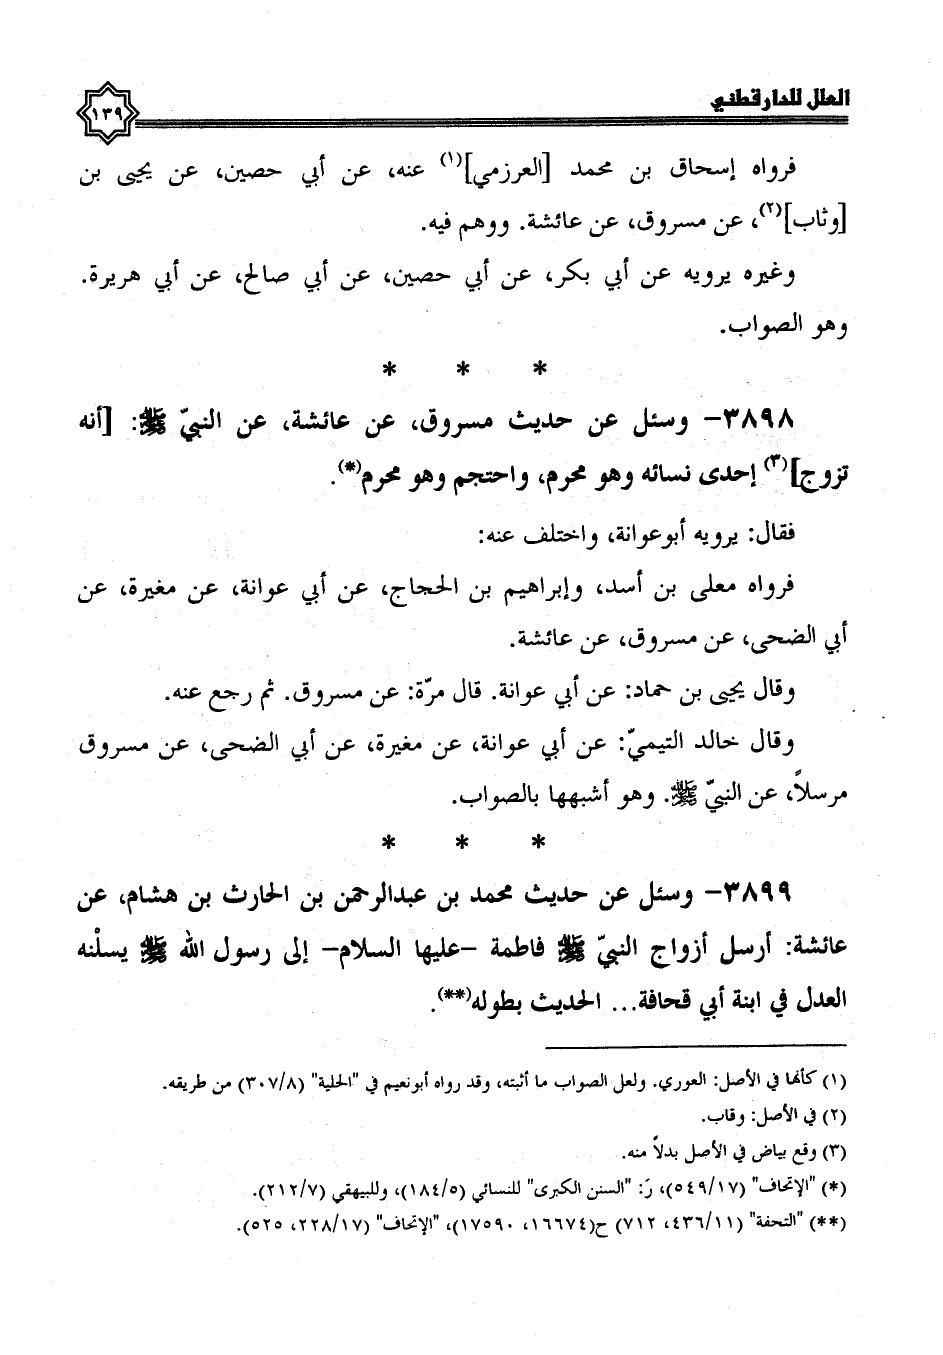 العلل للدارقطني
١٣٩
فرواه إسحاق بن محمد [العرزمي](١) عنه، عن أبي حصين، عن يحيى بن
[وثاب](٢)، عن مسروق، عن عائشة. ووهم فيه.
وغيره يرويه عن أبي بكر، عن أبي حصين، عن أبي صالح، عن أبي هريرة.
وهو الصواب.
* * *
٣٨٩٨- وسئل عن حديث مسروق، عن عائشة، عن النبيّ ﷺ: [أنه
تزوج](٣) إحدى نسائه وهو محرم، واحتجم وهو محرم(*).
فقال: يرويه أبوعوانة، واختلف عنه:
فرواه معلى بن أسد، وإبراهيم بن الحجاج، عن أبي عوانة، عن مغيرة، عن
أبي الضحى، عن مسروق، عن عائشة.
وقال يحيى بن حماد: عن أبي عوانة. قال مرّة: عن مسروق. ثم رجع عنه.
وقال خالد التيميّ: عن أبي عوانة، عن مغيرة، عن أبي الضحى، عن مسروق
مرسلاً، عن النبيّ ﷺ. وهو أشبهها بالصواب.
* * *
٣٨٩٩- وسئل عن حديث محمد بن عبدالرحمن بن الحارث بن هشام، عن
عائشة: أرسل أزواج النبيّ ﷺ فاطمة -عليها السلام- إلى رسول الله ﷺ يسلْنه
العدل في ابنة أبي قحافة... الحديث بطوله(**).
(١) كأنها في الأصل: العوري. ولعل الصواب ما أثبته، وقد رواه أبونعيم في "الحلية" (٣٠٧/٨) من طريقه.
(٢) في الأصل: وقاب.
(٣) وقع بياض في الأصل بدلاً منه.
(*) "الإتحاف" (٥٤٩/١٧)، رَ: "السنن الكبرى" للنسائي (١٨٤/٥)، وللبيهقي (٢١٢/٧).
(**) "التحفة" (٤٣٦/١١، ٧١٢) ح(١٦٦٧٤، ١٧٥٩٠)، "الإتحاف" (٢٢٨/١٧، ٥٢٥).